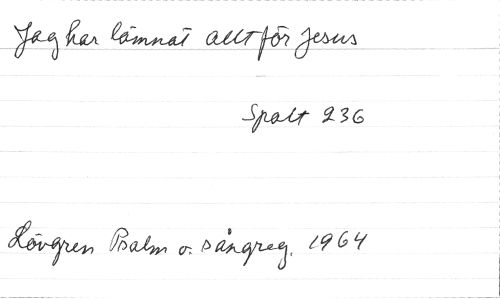 Jag har lämnat allt för Jesus
Spalt 236
Lövgren Psalm o. sångreg. 1964